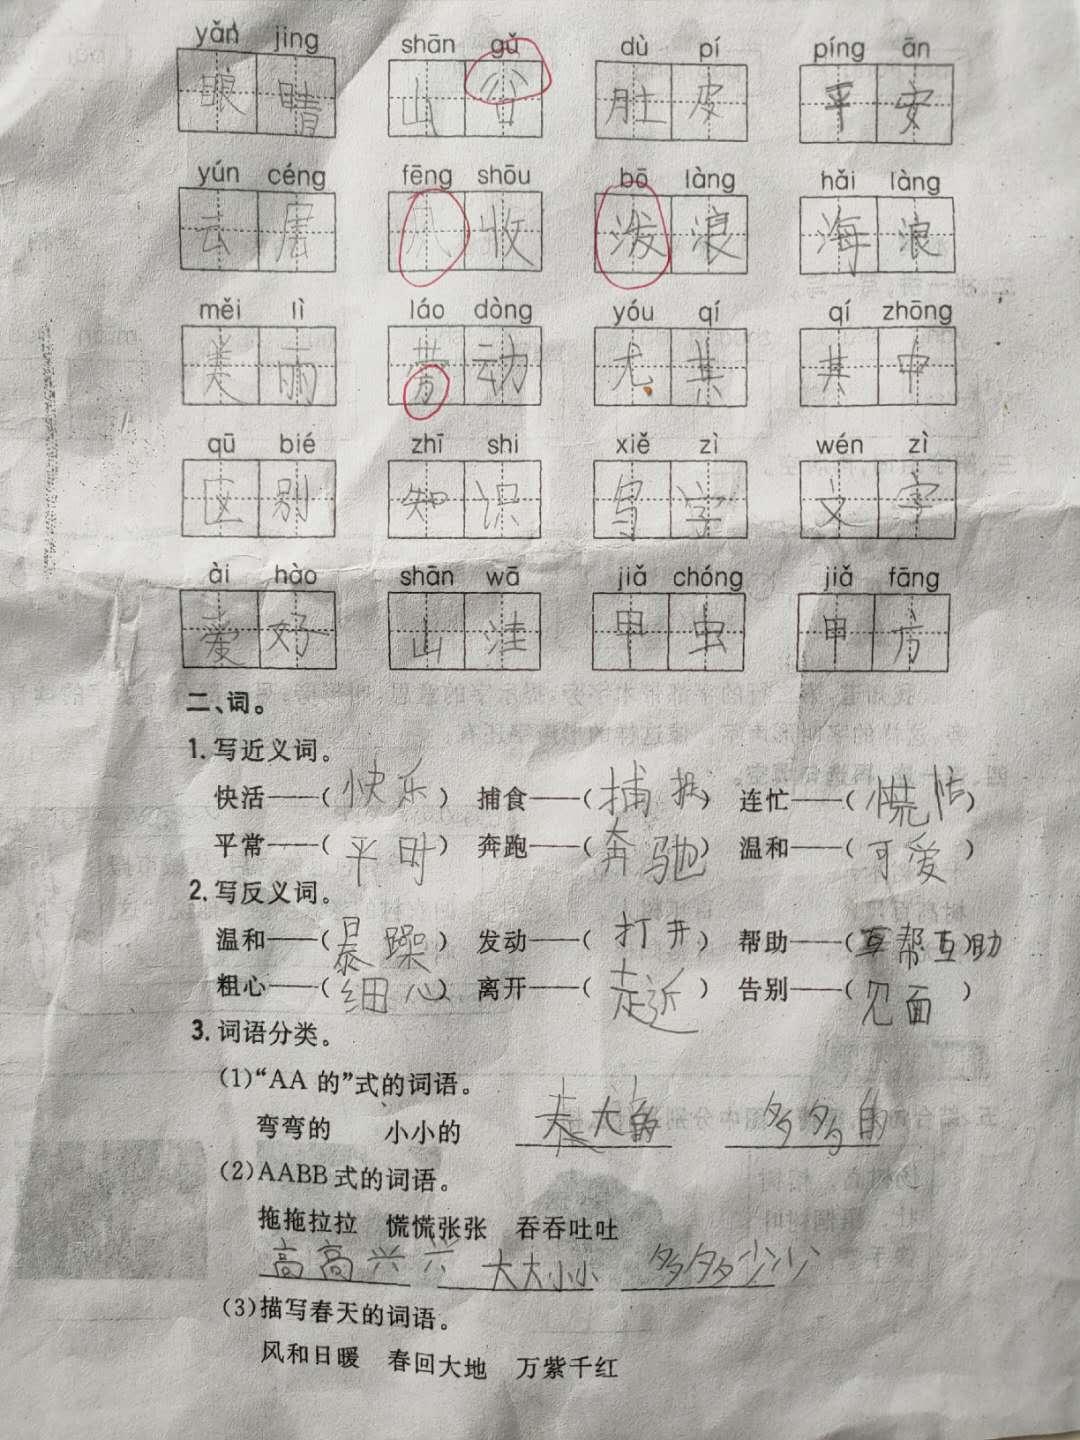 yǎn jing shān gǔ dù pí píng ān
眼 睛 山 谷 肚 皮 平 安
yún céng fēng shōu bō làng hǎi làng
云 层 风 收 泼 浪 海 浪
měi lì láo dòng yóu qí qí zhōng
美 丽 劳 动 尤 其 其 中
qū bié zhī shi xiě zì wén zì
区 别 知 识 写 字 文 字
ài hào shān wā jiǎ chóng jiǎ fāng
爱 好 山 洼 甲 虫 甲 方
二、词。
1. 写近义词。
快活——(快乐) 捕食——(捕捉) 连忙——(慌忙)
平常——(平时) 奔跑——(奔驰) 温和——(可爱)
2. 写反义词。
温和——(暴躁) 发动——(打开) 帮助——(互帮互助)
粗心——(细心) 离开——(走近) 告别——(见面)
3. 词语分类。
(1)“AA 的”式的词语。
弯弯的 小小的 大的 多多的
(2)AABB 式的词语。
拖拖拉拉 慌慌张张 吞吞吐吐
高高兴兴 大大小小 多多少少
(3)描写春天的词语。
风和日暖 春回大地 万紫千红